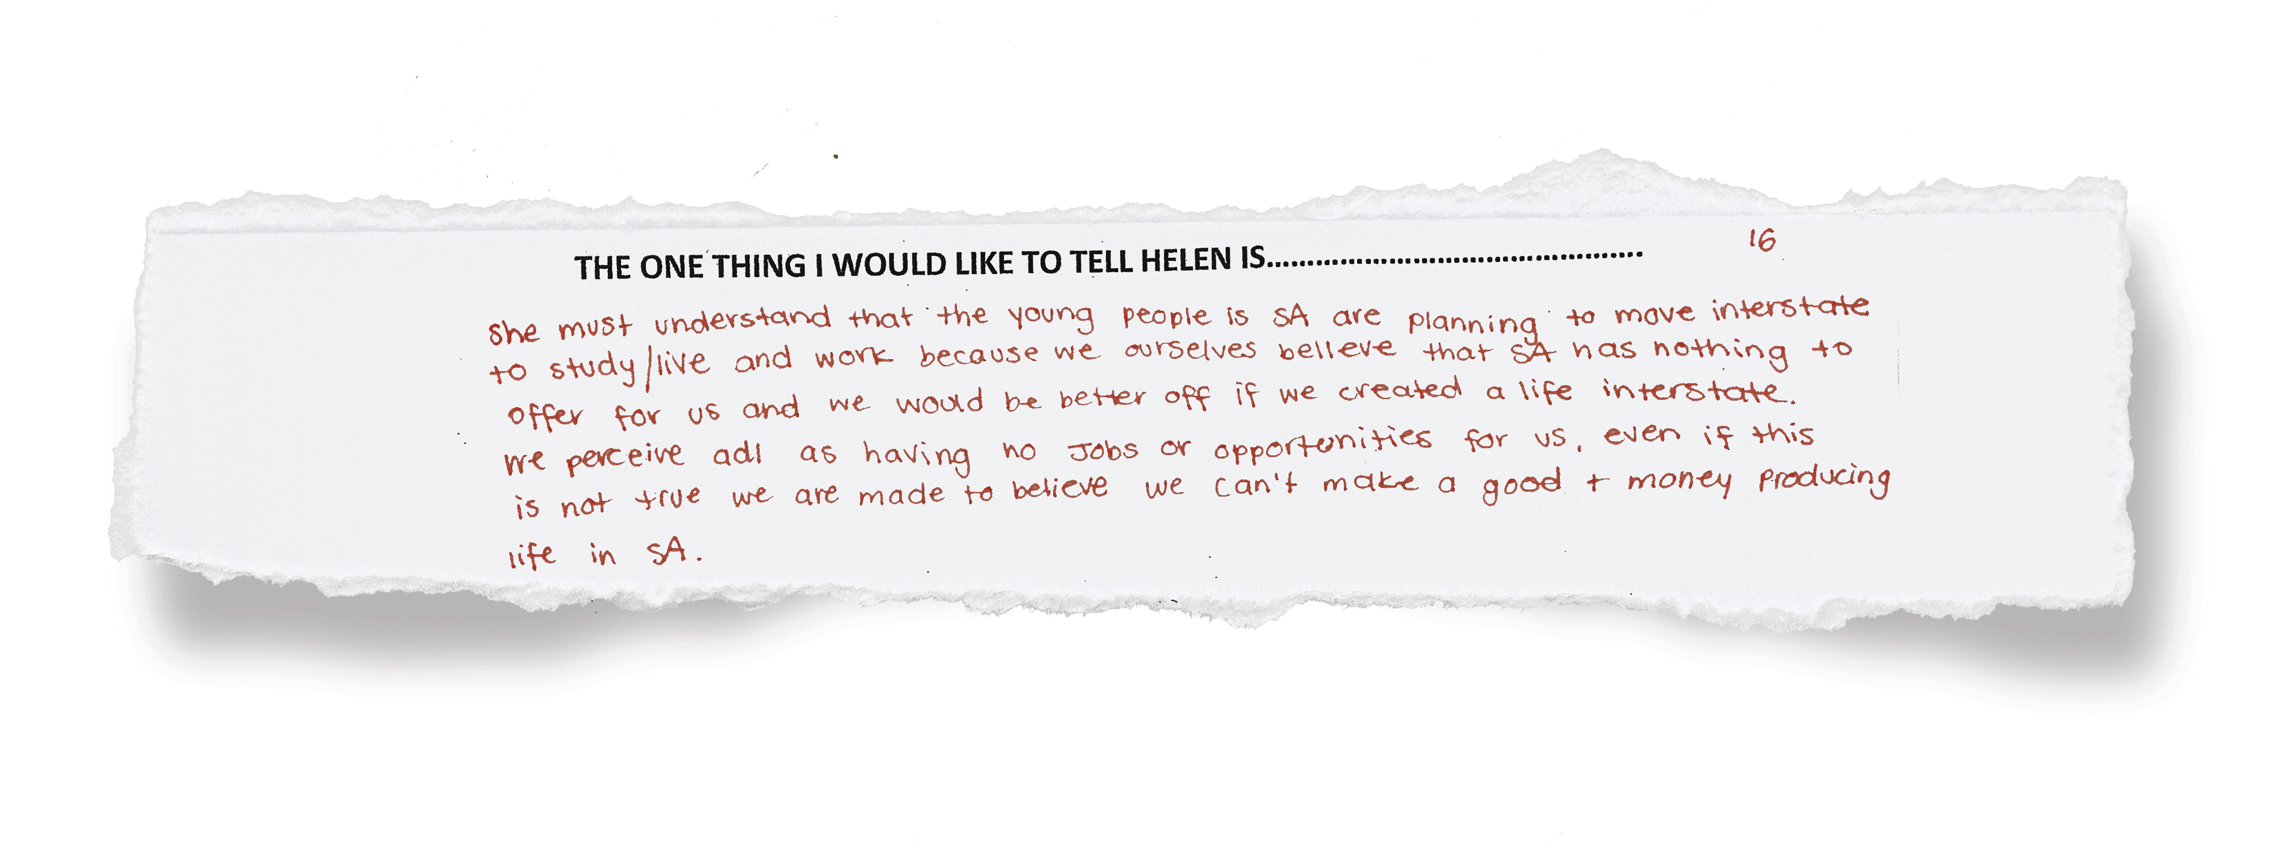 THE ONE THING I WOULD LIKE TO TELL HELEN IS............................................... 16
She must understand that the young people is SA are planning to move interstate
to study/live and work because we ourselves believe that SA has nothing to
offer for us and we would be better off if we created a life interstate.
We perceive adl as having no Jobs or opportunities for us, even if this
is not true we are made to believe we can't make a good + money producing
life in SA.